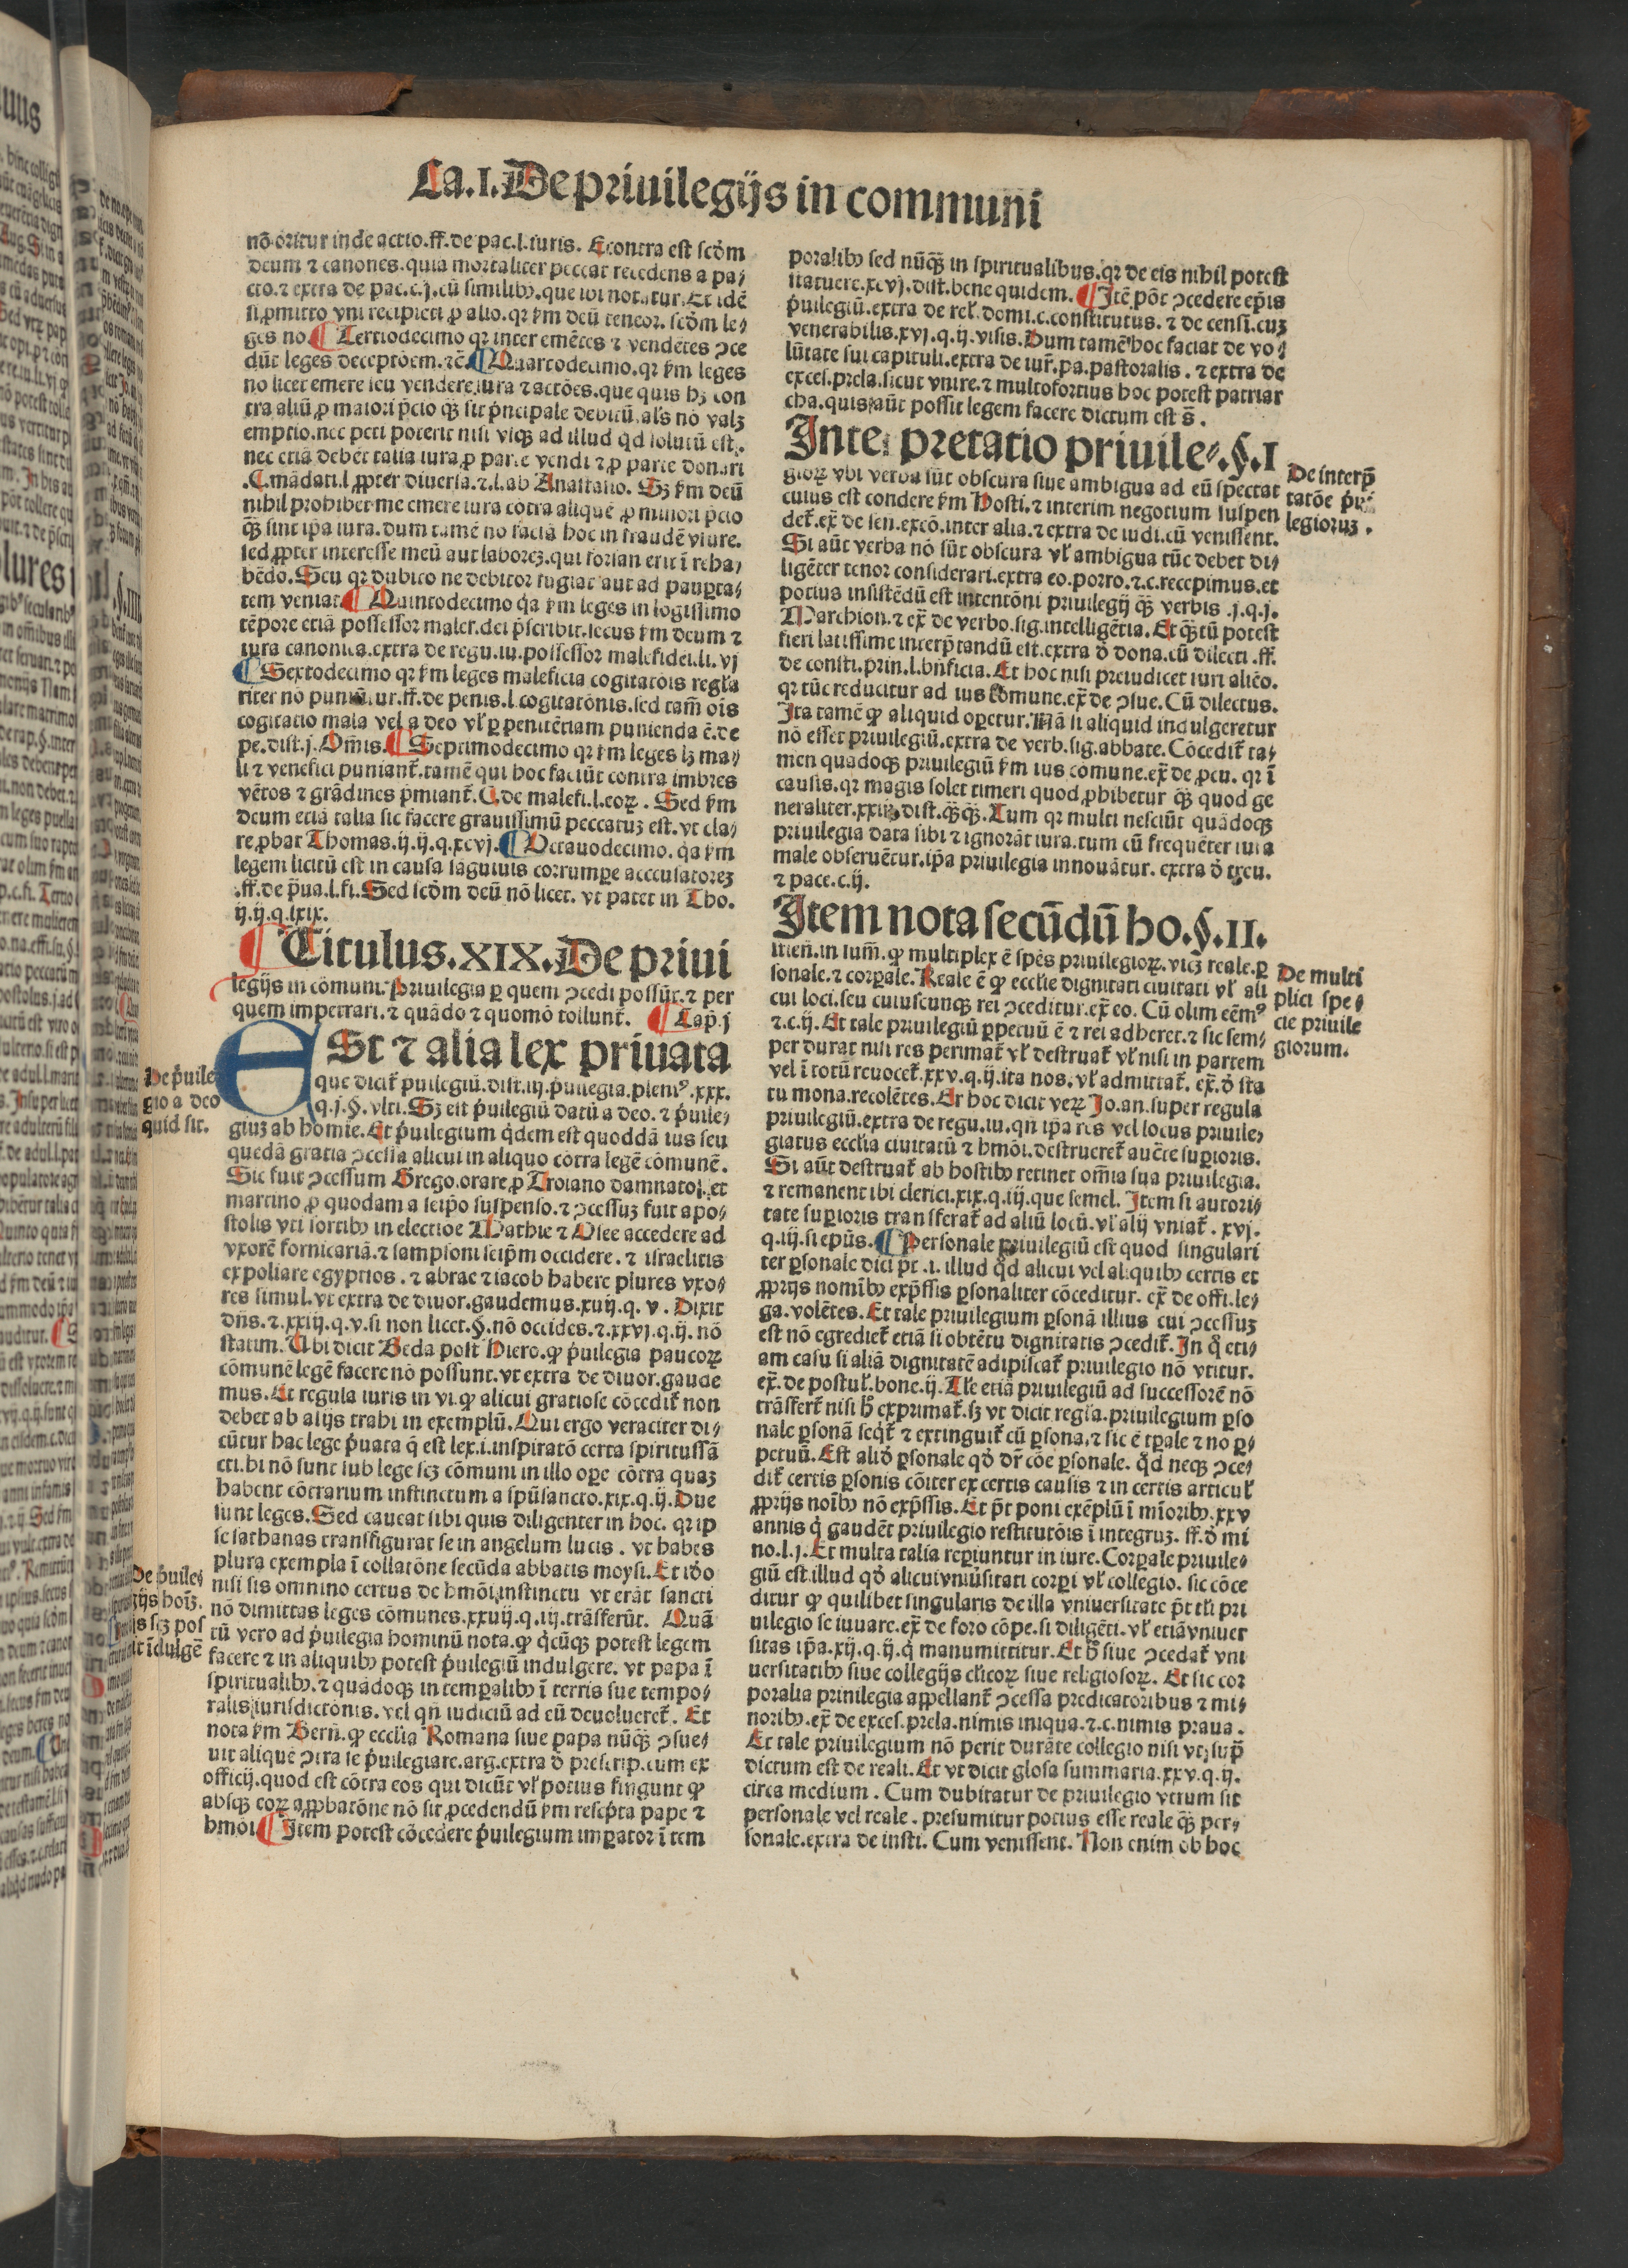 Ca.I. De priuilegijs in communi
nō oritur inde actio.ff.de pac.l.iuris. Econtra est scḋm
deum ⁊ canones.quia mortaliter peccat recedens a pa⸗
cto.⁊ extra de pac.c.j.cū similibꝫ.que ibi notātur.Et idē
si ꝓmitto vni recipiēti ꝓ alio.qꝛ km deū teneor. scḋm le⸗
ges no. Tertiodecimo qꝛ inter emētes ⁊ vendētes ꝯce
dūt leges deceptōem.⁊c̄. Quartodecimo.qꝛ km leges
no licet emere seu vendere iura ⁊ actōes.que quis hꝫ con
tra aliū ꝓ maiori p̄cio qꝫ̄ sit p̄ncipale debitū.als̄ nō valꝫ
emptio.nec peti poterit nisi vsqꝫ ad illud qd̄ solutū est.
nec etiā debēt talia iura ꝓ parte vendi ⁊ ꝓ parte donari
.C.mādati.l.ꝓpter diuersa.⁊.l.ab Anastasio. Sꝫ km deū
nihil prohibet me emere iura cōtra aliquē ꝓ minori p̄cio
qꝫ̄ sint ip̄a iura.dum tamē no faciā hoc in fraudē vsure.
sed ꝓpter interesse meū aut laboreꝫ.qui forsan erit ī reha⸗
bēdo.Seu qꝛ dubito ne debitor fugiat aut ad paupꝑta⸗
tem veniat. Quintodecimo q̇a km leges in lōgissimo
tēpore etiā possessor male f̄.dei p̄scribit.secus km deum ⁊
iura canonica.extra de regu.iu.possessor malefidei.li.vj
Sextodecimo qꝛ km leges maleficia cogitatōis regl̄a
riter nō puniūtur.ff.de penis.l.cogitatōnis.sed tam̄ oīs
cogitatio mala vel a deo vl̄ ꝑ penitētiam punienda ē.de
pe.dist.j.Om̄is. Septimodecimo qꝛ km leges lꝫ ma⸗
li ⁊ venefici puniant̄.tamē qui hoc faciūt contra imbres
vētos ⁊ grādines p̄miant̄.C.de malefi.l.eoꝝ. Sed km
deum etiā talia sic facere grauissimū peccatuꝫ est.vt cla⸗
re ꝓbat Thomas.ij.ij.q.xcvj. Octauodecimo.q̇a km
legem licitū est in causa sāguinis corrumpe accusatoreꝫ
.ff.de p̄ua.l.fi.Sed scḋm deū nō licet. vt patet in Tho.
ij.ij.q.lxix.
Titulus.XIX.De priui
legijs in cōmuni.Priuilegia ꝑ quem ꝯcedi possūt.⁊ per
quem impetrari.⁊ quādo ⁊ quomō tollunt̄. Cap̄.j
ESt ⁊ alia lex priuata
que dicit̄ puilegiū.dist.iij.ṗuilegia.pleniꝰ.xxx.
q.j.§.vlti.Sꝫ est ṗuilegiū datū a deo.⁊ ṗuile⸗
giuꝫ ab homīe.Et ṗuilegium q̇dem est quoddā ius seu
quedā gratia ꝯcessa alicui in aliquo cōtra legē cōmunē.
Sic fuit ꝯcessum Grego.orare ꝓ Troiano damnato.et
martino ꝓ quodam a seip̄o suspenso.⁊ ꝯcessuꝫ fuit apo⸗
stolis vti sortibꝫ in electiōe Mathie ⁊ Osee accedere ad
vxorē fornicariā.⁊ sampsoni seip̄m occidere.⁊ israelitis
expoliare egyptios.⁊ abrae ⁊ iacob habere plures vxo⸗
res simul.vt extra de diuor.gaudemus.xxij.q.v.Dixit
dn̄s.⁊.xxiij.q.v.si non licet.§.nō occides.⁊.xxvj.q.ij. nō
statim.Ubi dicit Beda post Hiero.ꝙ ṗuilegia paucoꝝ
cōmunē legē facere nō possunt.vt extra de diuor.gaude
mus.Et regula iuris in vi.ꝙ alicui gratiose cōcedit̄ non
debet ab alijs trahi in exemplū.Qui ergo veraciter di⸗
cūtur hac lege ṗuata q̄ est lex.i.inspiratō certa spiritussā
cti.hi nō sunt sub lege scꝫ cōmuni in illo oꝑe cōtra quaꝫ
habent cōtrarium instinctum a spūsancto.xix.q.ij.Due
sunt leges.Sed caueat sibi quis diligenter in hoc. qꝛ ip
se sathanas transfigurat se in angelum lucis. vt habes
plura exempla ī collatōne secūda abbatis moysi.Et iḋo
nisi sis omnino certus de hmōi instinctu vt erāt sancti
nō dimittas leges cōmunes.xxvij.q.iij.trāsferūt. Quā
tū vero ad ṗuilegia hominū nota.ꝙ q̇cūqꝫ potest legem
facere ⁊ in aliquibꝫ potest ṗuilegiū indulgere. vt papa ī
spiritualibꝫ.⁊ quādoqꝫ in tempalibꝫ ī terris sue tempo⸗
ralis iurisdictōnis.vel qn̄ iudiciū ad eū deuolueret̄. Et
nota km Bern̄.ꝙ ecclīa Romana siue papa nūqꝫ̄ ꝯsue⸗
uit aliquē ꝯtra se ṗuilegiare.arg.extra ḋ prescrip.cum ex
officij.quod est cōtra eos qui dicūt vl̄ potius fingunt ꝙ
absqꝫ eoꝝ aꝓbatōne nō sit ꝓcedendū km resc̄pta pape ⁊
hmōi. Item potest cōcedere ṗuilegium imꝑator ī tem
De ṗuile
gio a deo
quid sit.
De ṗuile⸗
gijs hoīꝫ.
scꝫ pos
īdulgē
poralibꝫ sed nūqꝫ̄ in spiritualibus.qꝛ de eis nihil potest
statuere.xcvj.dist.bene quidem. Itē pōt ꝯcedere ep̄is
ṗuilegiū.extra de rel̄.domi.c.constitutus.⁊ de censi.cuꝫ
venerabilis.xvj.q.ij.visis.Dum tamē hoc faciat de vo⸗
lūtate sui capituli.extra de iur̄.pa.pastoralis.⁊ extra de
exces.prela.sicut vnire.⁊ multofortius hoc potest patriar
cha.quis aūt possit legem facere dictum est s̄.
Interpretatio priuile⸗.§.I
gioꝝ vbi verba sūt obscura siue ambigua ad eū spectat
cuius est condere km Hosti.⁊ interim negotium suspen
det̄.ex̄ de sen.excō.inter alia.⁊ extra de iudi.cū venissent.
Si aūt verba nō sūt obscura vl̄ ambigua tūc debet di⸗
ligēter tenor considerari.extra eo.porro.⁊.c.recepimus.et
potius insistēdū est intentōni priuilegij qꝫ̄ verbis.j.q.j.
Marchion.⁊ ex̄ de verbo.sig.intelligētia.Et qꝫ̄tū potest
fieri latissime interp̄tandū est.extra ḋ dona.cū dilecti.ff.
de consti.prin.l.bn̄ficia.Et hoc nisi preiudicet iuri aliēo.
qꝛ tūc reducitur ad ius cōmune.ex̄ de ꝯsue.Cū dilectus.
Ita tamē ꝙ aliquid oꝑetur.Nā si aliquid indulgeretur
nō esset priuilegiū.extra de verb.sig.abbate.Cōcedit̄ ta⸗
men quādoqꝫ priuilegiū km ius cōmune.ex̄ de ꝓcu. qꝛ ī
causis.qꝛ magis solet timeri quod ꝓhibetur qꝫ̄ quod ge
neraliter.xxiij.dist.qꝫ̄qꝫ̄.Tum qꝛ multi nesciūt quādoqꝫ
priuilegia data sibi ⁊ ignorāt iura.tum cū frequēter iura
male obseruētur.ip̄a priuilegia innouātur. extra ḋ treu.
⁊ pace.c.ij.
Item nota secūdū ho.§.II.
stien̄.in sum̄.ꝙ multiplex ē spēs priuilegioꝝ.vicꝫ reale.ꝑ
sonale.⁊ corꝑale.Reale ē ꝙ ecclīe dignitati ciuitati vl̄ ali
cui loci.seu cuiuscunqꝫ rei ꝯceditur.ex̄ eo.Cū olim eēmꝰ
⁊.c.ij.Et tale priuilegiū ꝑpetuū ē ⁊ rei adheret.⁊ sic sem⸗
per durat nisi res perimat̄ vl̄ destruat̄ vl̄ nisi in partem
vel ī totū reuocet̄.xxv.q.ij.ita nos.vl̄ admittat̄.ex̄.ḋ sta
tu mona.recolētes.Et hoc dicit veꝝ Jo.an.super regula
priuilegiū.extra de regu.iu.qn̄ ip̄a res vel locus priuile⸗
giatus ecclīa ciuitatū ⁊ hmōi.destrueret̄ auc̄te suꝑioris.
Si aūt destruat̄ ab hostibꝫ retinet om̄ia sua priuilegia.
⁊ remanent ibi clerici.xix.q.iij.que semel. Item si autori⸗
tate suꝑioris transferat̄ ad aliū locū.vl̄ alij vniat̄.xvj.
q.iij.si ep̄us. Personale priuilegiū est quod singulari
ter ꝑsonale dici pt̄.i.illud qḋ alicui vel aliquibꝫ certis et
ꝓprijs nomībꝫ exp̄ssis ꝑsonaliter cōceditur. ex̄ de offi.le⸗
ga.volētes.Et tale priuilegium ꝑsonā illius cui ꝯcessuꝫ
est nō egrediet̄ etiā si obtētu dignitatis ꝯcedit̄.In q̄ eti⸗
am casu si aliā dignitatē adipiscat̄ priuilegio nō vtitur.
ex̄.de postul̄.bone.ij.Tl̄e etiā priuilegiū ad successorē nō
trāsfert̄ nisi h̄ exprimat̄.sꝫ vt dicit regl̄a.priuilegium ꝑso
nale ꝑsonā seq̇t̄ ⁊ extinguit̄ cū ꝑsona.⁊ sic ē tꝑale ⁊ no ꝑ⸗
petuū.Est aliḋ ꝑsonale qḋ dr̄ cōe ꝑsonale. qḋ neqꝫ ꝯce⸗
dit̄ certis ꝑsonis cōiter ex certis causis ⁊ in certis articul̄
ꝓprijs noībꝫ nō exp̄ssis.Et pt̄ poni exēplū ī mīoribꝫ.xxv
annis q̇ gaudēt priuilegio restitutōis ī integruꝫ. ff.ḋ mi
no.l.j.Et multa talia reꝑiuntur in iure.Corꝑale priuile⸗
giū est illud qḋ alicui vniūsitati corꝑi vl̄ collegio. sic cōce
ditur ꝙ quilibet singularis de illa vniuersitate pt̄ tn̄ pri
uilegio se iuuare.ex̄ de foro cōpe.si diligēti.vl̄ etiā vniuer
sitas ip̄a.xij.q.ij.q̇ manumittitur.Et h̄ siue ꝯcedat̄ vni
uersitatibꝫ siue collegijs cl̄icoꝝ siue religiosoꝝ. Et sic cor
poralia priuilegia appellant̄ ꝯcessa predicatoribus ⁊ mi⸗
noribꝫ.ex̄ de exces.prela.nimis iniqua.⁊.c.nimis praua.
Et tale priuilegium nō perit durāte collegio nisi vt sup̄
dictum est de reali.Et vt dicit glosa summaria.xxv.q.ij.
circa medium. Cum dubitatur de priuilegio vtrum sit
personale vel reale. presumitur potius esse reale qꝫ̄ per⸗
sonale.extra de insti. Cum venissent. Non enim ob hoc
De interp̄
tatōe ṗui
legioruꝫ.
De multi
plici spe⸗
cie priuile
giorum.